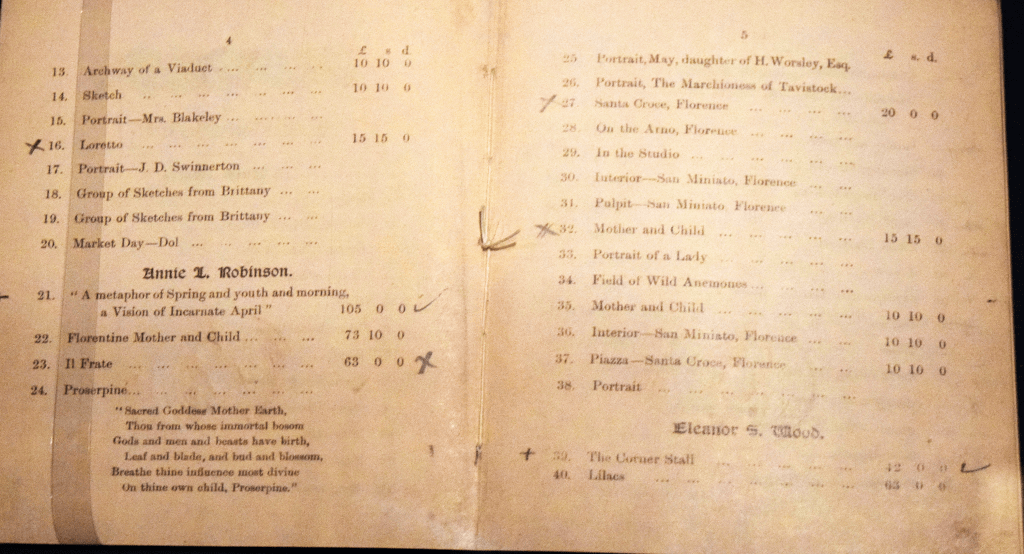 4
£ s d
13. Archway of a Viaduct ... ... ... ... 10 10 0
14. Sketch ... ... ... ... ... 10 10 0
15. Portrait—Mrs. Blakeley ... ... ...
16. Loretto ... ... ... ... ... 15 15 0
17. Portrait—J. D. Swinnerton ... ...
18. Group of Sketches from Brittany ... ...
19. Group of Sketches from Brittany ... ...
20. Market Day—Dol ... ... ... ...
Annie L. Robinson.
21. "A metaphor of Spring and youth and morning,
a Vision of Incarnate April" 105 0 0
22. Florentine Mother and Child ... ... ... 73 10 0
23. Il Frate ... ... ... ... ... ... 63 0 0
24. Proserpine... ... ... ... ... ...
"Sacred Goddess Mother Earth,
Thou from whose immortal bosom
Gods and men and beasts have birth,
Leaf and blade, and bud and blossom,
Breathe thine influence most divine
On thine own child, Proserpine."
5
£ s. d.
25 Portrait, May, daughter of H. Worsley, Esq.
26. Portrait, The Marchioness of Tavistock...
27. Santa Croce, Florence ... ... ... 20 0 0
28. On the Arno, Florence ... ... ...
29. In the Studio ... ... ... ... ...
30. Interior—San Miniato, Florence ... ...
31. Pulpit—San Miniato, Florence ... ...
32. Mother and Child ... ... ... ... 15 15 0
33. Portrait of a Lady ... ... ... ...
34. Field of Wild Anemones ... ... ... ...
35. Mother and Child ... ... ... ... 10 10 0
36. Interior—San Miniato, Florence ... ... 10 10 0
37. Piazza—Santa Croce, Florence ... ... 10 10 0
38. Portrait ... ... ... ... ... ...
Eleanor S. Wood.
39. The Corner Stall ... ... ... ... 42 0 0
40. Lilacs ... ... ... ... ... ... 63 0 0